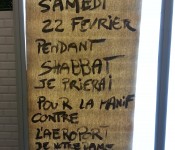 SAMEDI
22 FEVRIER
PENDANT
SHABBAT
JE PRIERAI
POUR LA MANIF
CONTRE
L'AEROPORT
DE NOTRE DAME